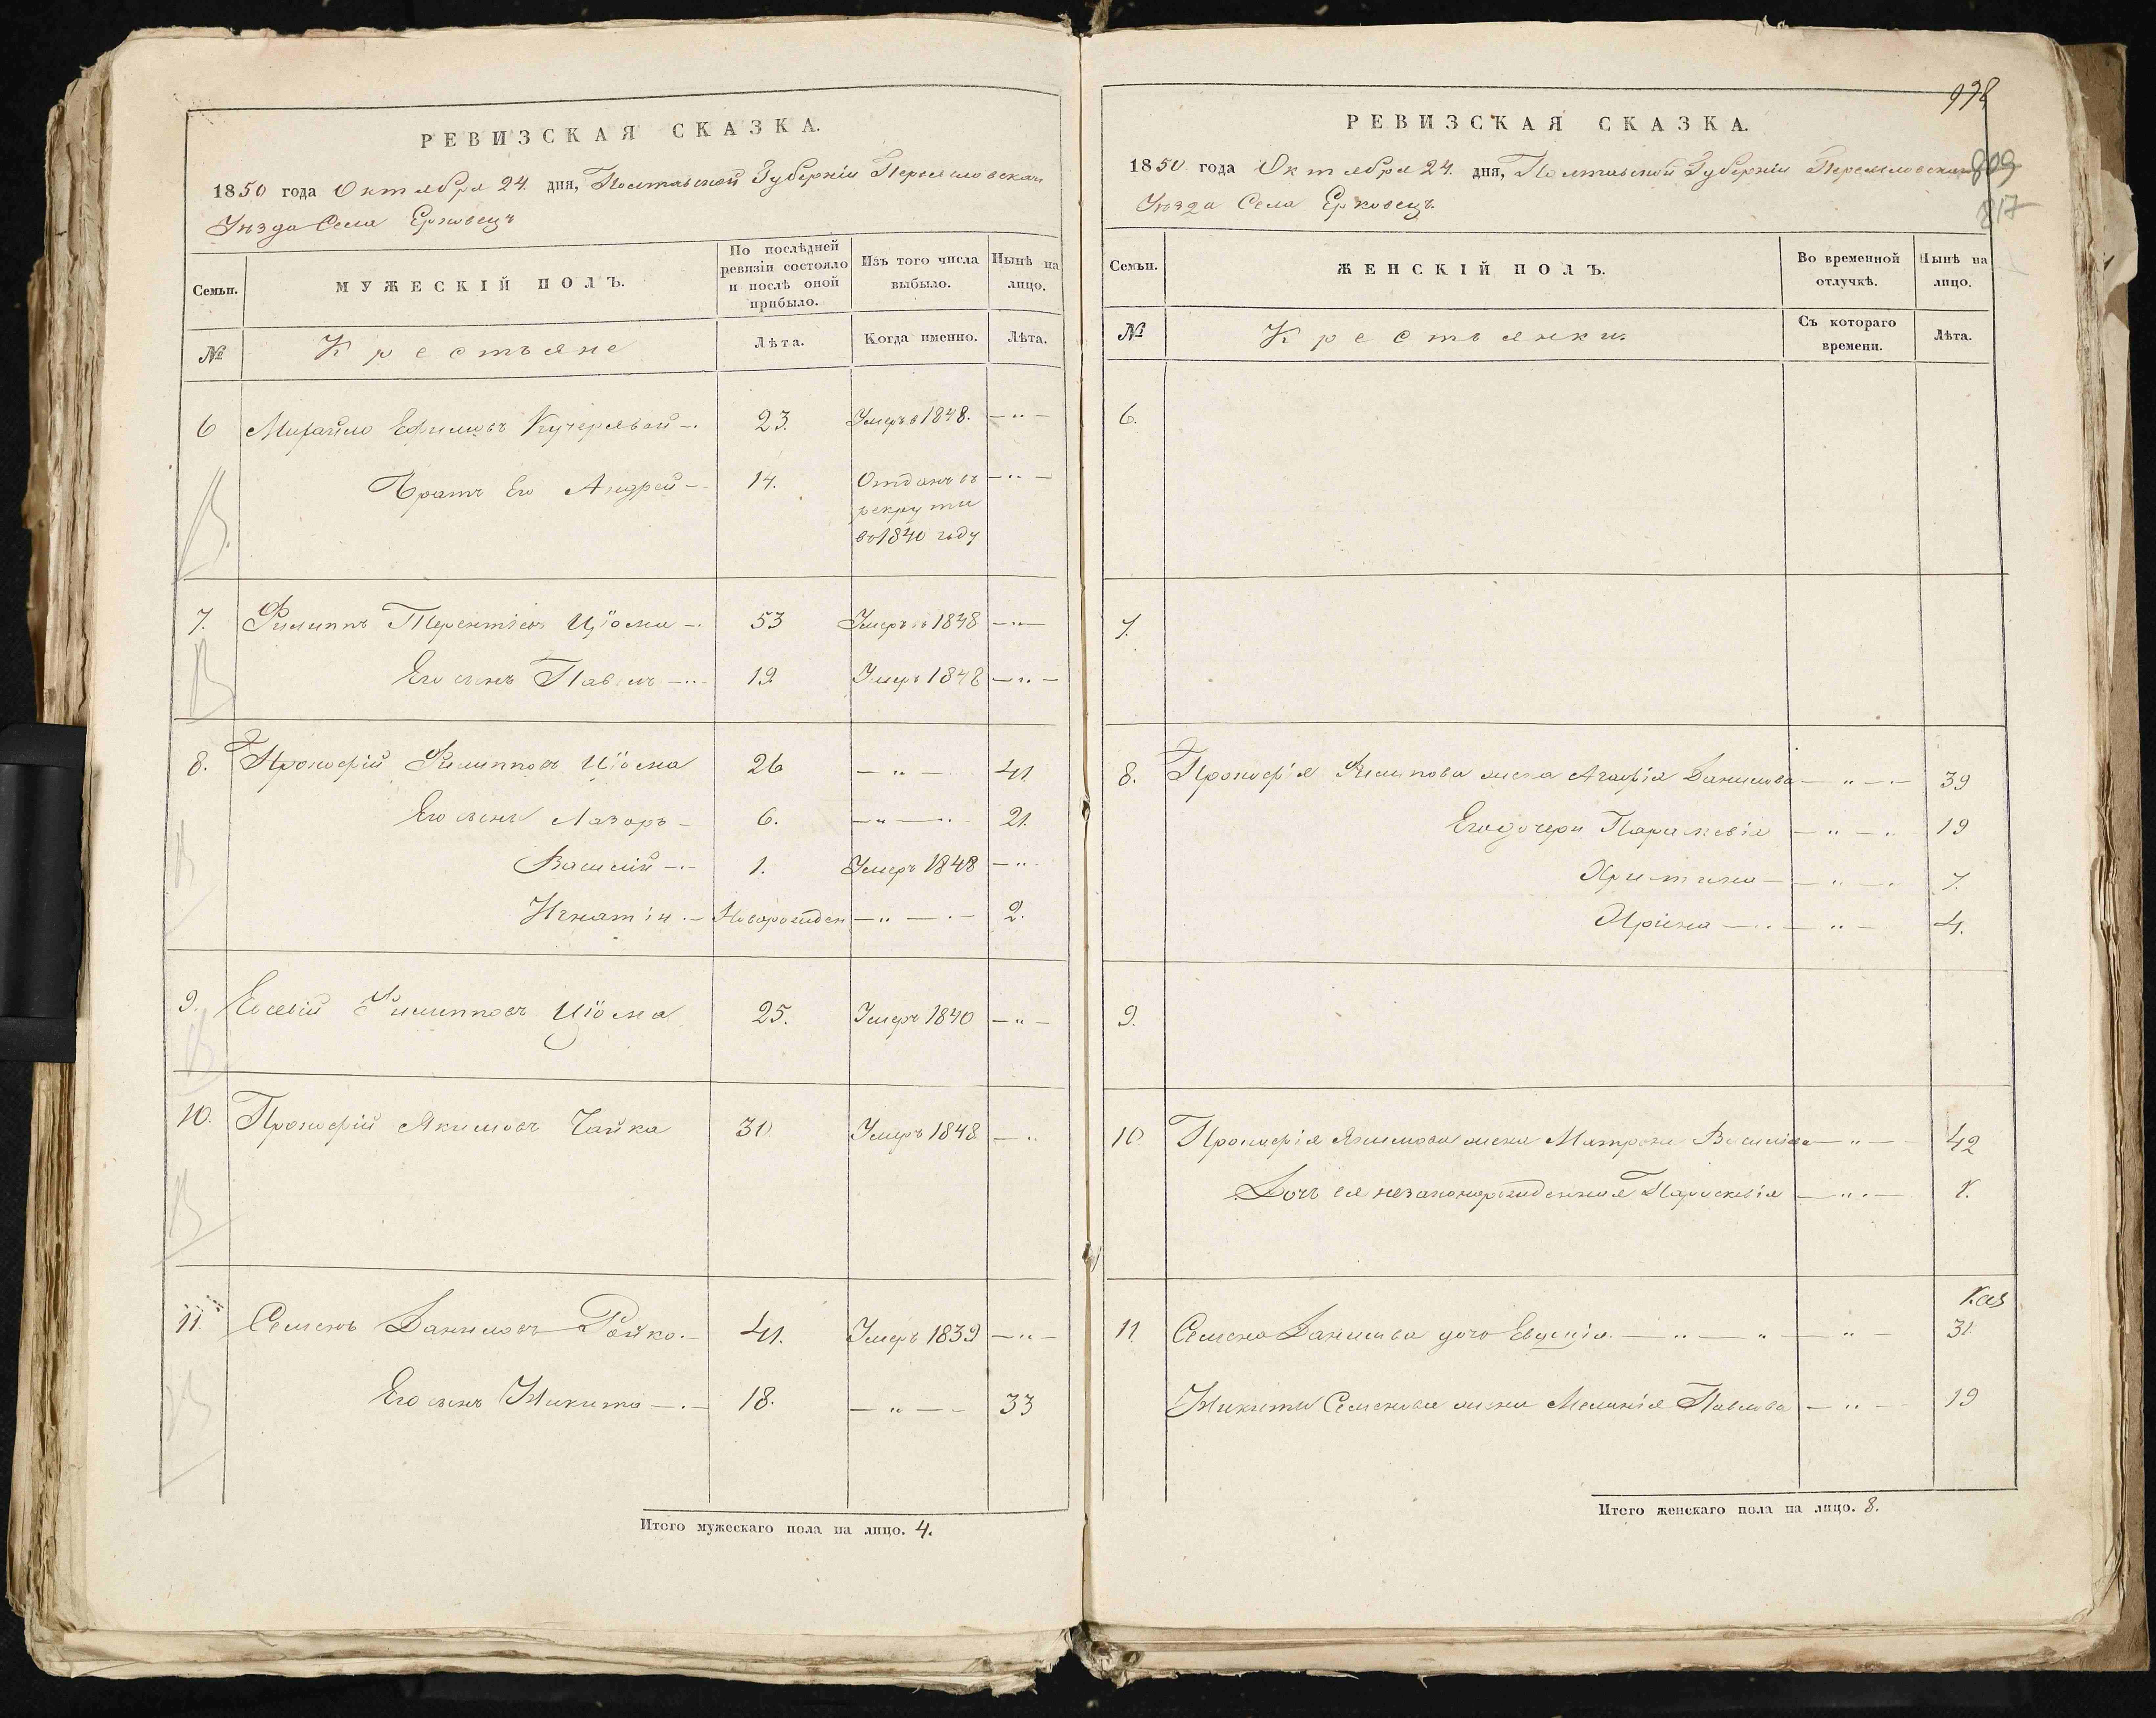 РЕВИЗСКАЯ СКАЗКА.
1850 года Октября 24 дня, Полтавской Губерніи Переясловскаго
Уѣзда Села Ерковецъ
Семьи. МУЖЕСКІЙ ПОЛЪ. По послѣдней ревизіи состояло и послѣ оной прибыло. Изъ того числа выбыло. Нынѣ на лицо.
№ Крестьяне Лѣта. Когда именно. Лѣта.
6 Михайло Ефимовъ Кучерявой 23. Умеръ в 1848. — " —
Братъ Его Андрей 14. Отданъ въ — " —
рекруты
въ 1840 году
7. Филиппъ Терентіевъ Цёма 53 Умеръ въ 1848 — " —
Его сынъ Павелъ 19. Умеръ 1848 — " —
8. Прокофій Филипповъ Цёма 26 — " — 41
Его сынъ Лазоръ 6. — " — 21.
Василій 1. Умеръ 1848 — "
Игнатій Новорожден — " — 2.
9. Евсевій Филипповъ Цёма 25. Умеръ 1840 — " —
10. Прокофій Якимовъ Чайка 30 Умеръ 1848 — "
11. Семенъ Даниловъ Бойко. 41. Умеръ 1839 — " —
Его сынъ Никита 18. — " — 33
Итого мужескаго пола на лицо. 4.
998
РЕВИЗСКАЯ СКАЗКА.
1850 года Октября 24. дня, Полтавской Губерніи Переясловскаго 809
Уѣзда Села Ерковецъ. 817
Семьи. ЖЕНСКІЙ ПОЛЪ. Во временной отлучкѣ. Нынѣ на лицо.
№ Крестьянки Съ котораго времени. Лѣта.
6.
7.
8. Прокофія Филипова жена Агафія Данилова — " — 39
Его дочери Параскевія — " — 19
Христина — " — 7.
Ирина — " — 4.
9.
10. Прокофія Якимова жена Матрона Василіева — " — 42
Дочь ея незаконорожденная Параскевія — " —
11. Семена Данилова дочь Евдокія — " — " — " — 31
Никиты Семенова жена Меланія Павлова — " — 19
Итого женскаго пола на лицо. 8.